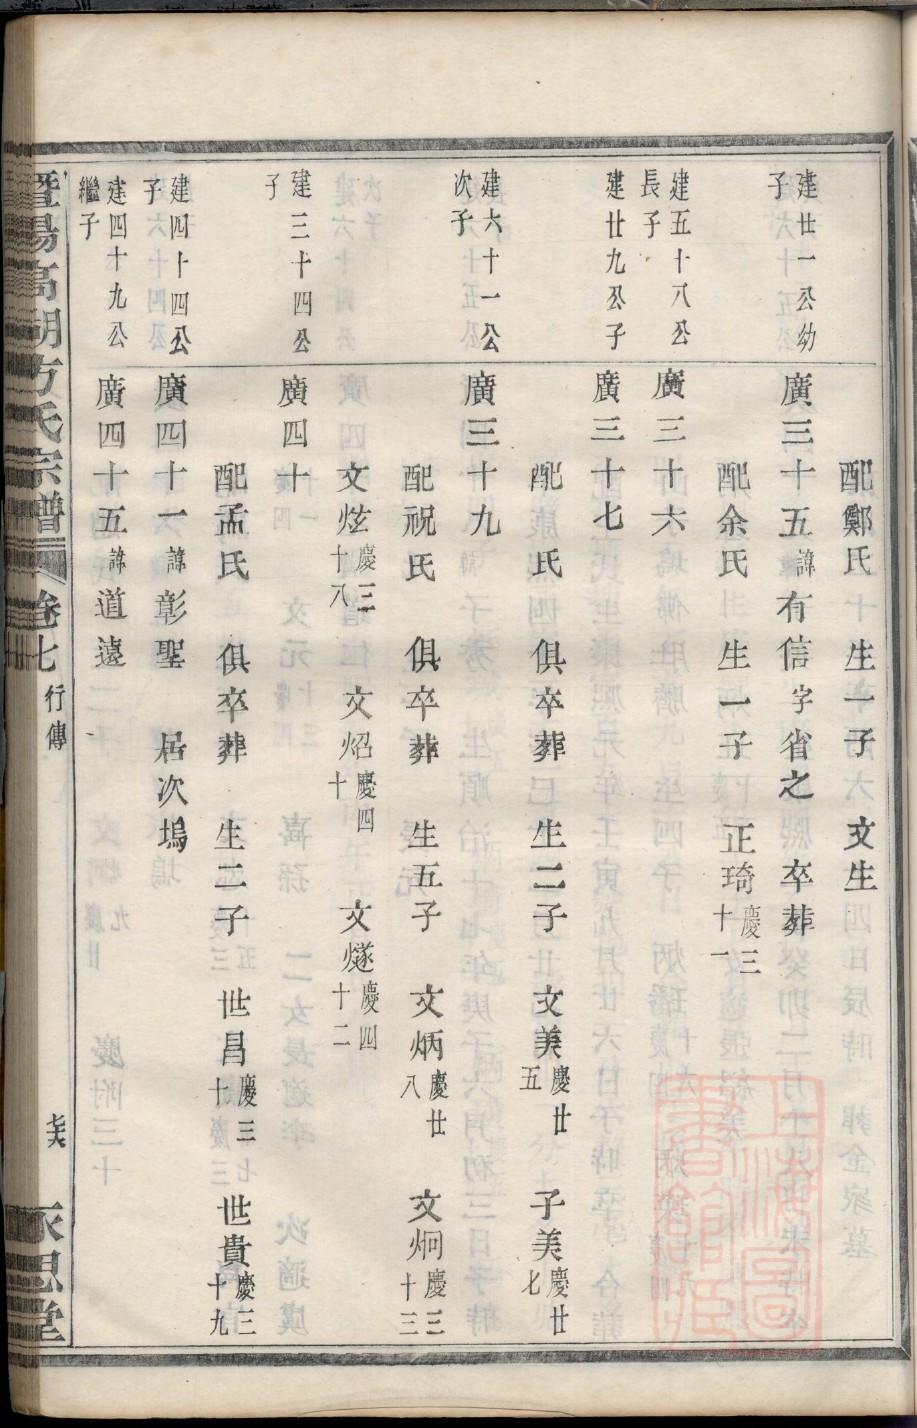 配鄭氏 生一子 文生
建廿一公幼子 廣三十五諱有信字省之 卒葬
配余氏 生一子 正琦慶三十一
建五十八公長子 廣三十六
建廿九公子 廣三十七
配 氏 俱卒葬 生二子 文美慶廿五 子美慶廿七
建六十一公次子 廣三十九
配祝氏 俱卒葬 生五子 文炳慶廿八 文炯慶三十三
文炫慶三十八 文炤慶四十 文燧慶四十二
建三十四公子 廣四十
配孟氏 俱卒葬 生二子 世昌慶三十 世貴慶三十九
建四十四公子 廣四十一諱彰聖 居次塢
建四十九公繼子 廣四十五諱道遠
暨陽高湖方氏宗譜 卷七 行傳 七六 永思堂